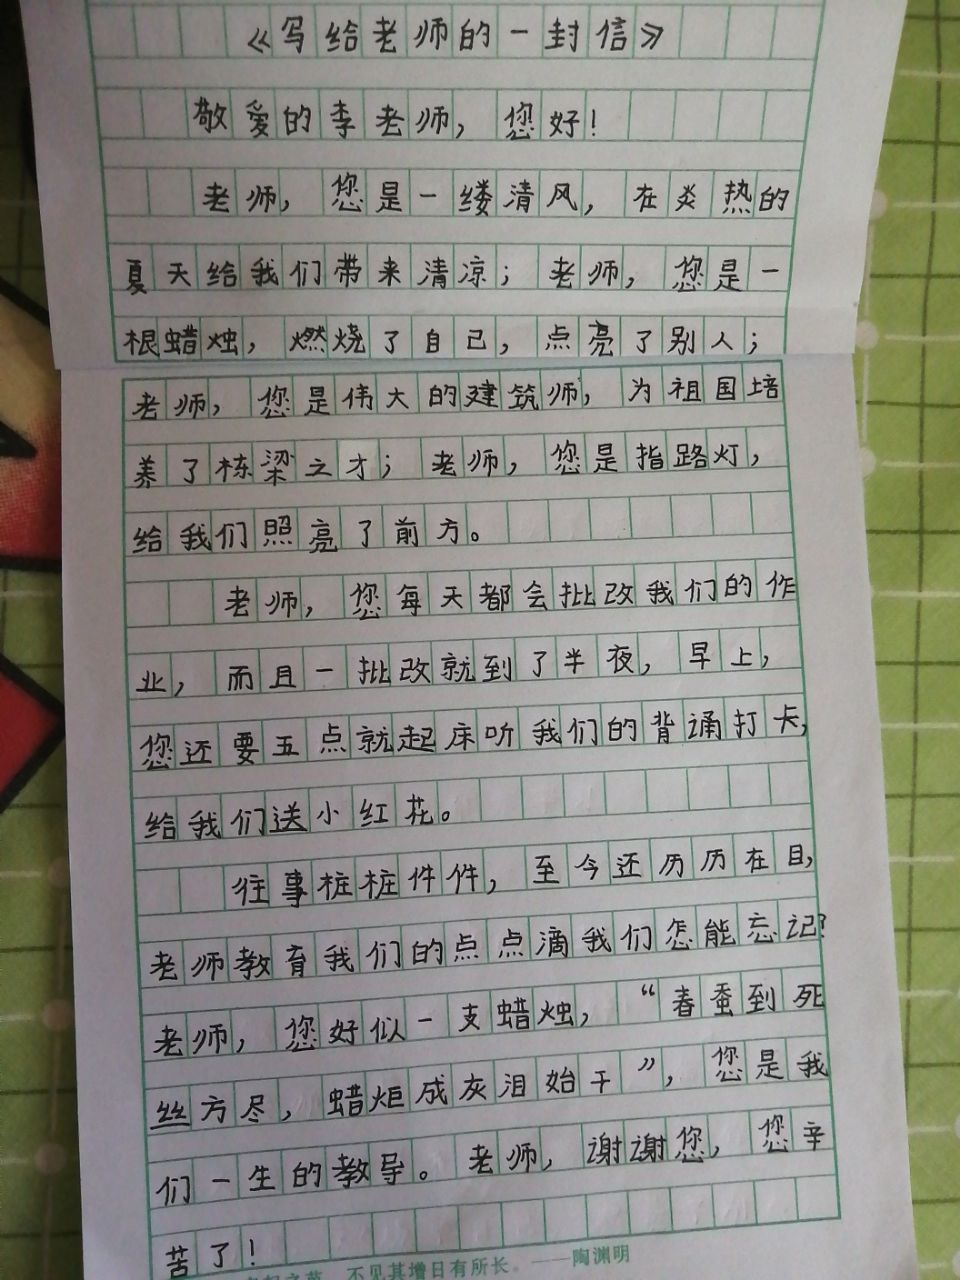 《写给老师的一封信》
敬爱的李老师，您好！
老师，您是一缕清风，在炎热的
夏天给我们带来清凉；老师，您是一
根蜡烛，燃烧了自己，点亮了别人；
老师，您是伟大的建筑师，为祖国培
养了栋梁之才；老师，您是指路灯，
给我们照亮了前方。
老师，您每天都会批改我们的作
业，而且一批改就到了半夜，早上，
您还要五点就起床听我们的背诵打卡，
给我们送小红花。
往事桩桩件件，至今还历历在目，
老师教育我们的点点滴我们怎能忘记？
老师，您好似一支蜡烛，“春蚕到死
丝方尽，蜡炬成灰泪始干”，您是我
们一生的教导。老师，谢谢您，您辛
苦了！
不见其增日有所长。——陶渊明